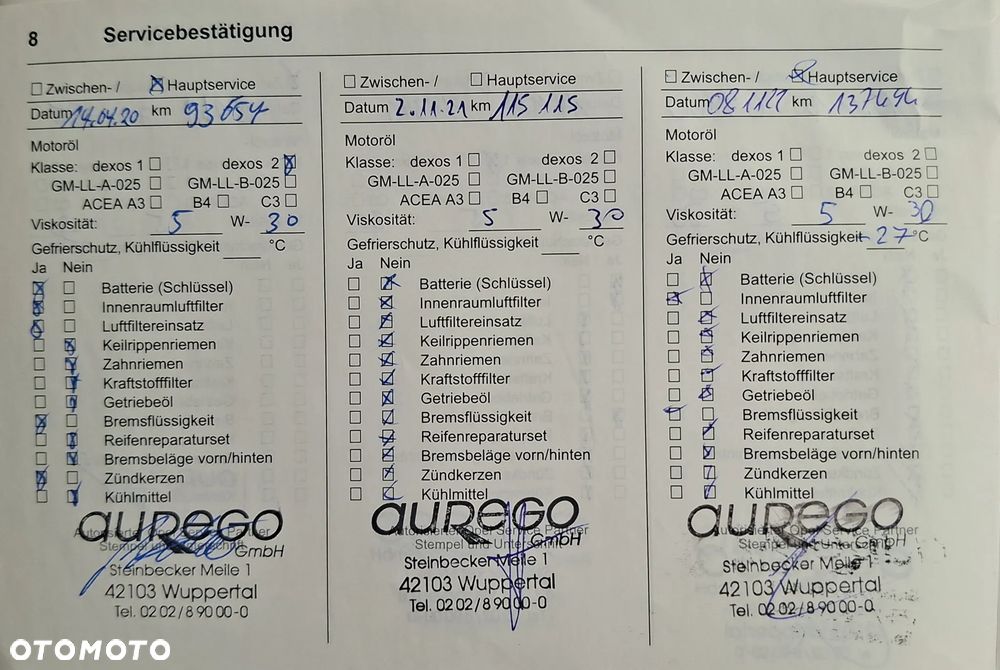 8 Servicebestätigung
Zwischen- / Hauptservice
Datum 14.04.20 km 93654
Motoröl
Klasse: dexos 1 dexos 2
GM-LL-A-025 GM-LL-B-025
ACEA A3 B4 C3
Viskosität: 5 W- 30
Gefrierschutz, Kühlflüssigkeit °C
Ja Nein
Batterie (Schlüssel)
Innenraumluftfilter
Luftfiltereinsatz
Keilrippenriemen
Zahnriemen
Kraftstofffilter
Getriebeöl
Bremsflüssigkeit
Reifenreparaturset
Bremsbeläge vorn/hinten
Zündkerzen
Kühlmittel
Autorisierter Opel Service Partner
Stempel und Unterschrift
aurego
GmbH
Steinbecker Meile 1
42103 Wuppertal
Tel. 02 02 / 8 90 00-0
Zwischen- / Hauptservice
Datum 2.11.21 km 115 115
Motoröl
Klasse: dexos 1 dexos 2
GM-LL-A-025 GM-LL-B-025
ACEA A3 B4 C3
Viskosität: 5 W- 30
Gefrierschutz, Kühlflüssigkeit °C
Ja Nein
Batterie (Schlüssel)
Innenraumluftfilter
Luftfiltereinsatz
Keilrippenriemen
Zahnriemen
Kraftstofffilter
Getriebeöl
Bremsflüssigkeit
Reifenreparaturset
Bremsbeläge vorn/hinten
Zündkerzen
Kühlmittel
Autorisierter Opel Service Partner
Stempel und Unterschrift
aurego
GmbH
Steinbecker Meile 1
42103 Wuppertal
Tel. 02 02 / 8 90 00-0
Zwischen- / Hauptservice
Datum 081122 km
Motoröl
Klasse: dexos 1 dexos 2
GM-LL-A-025 GM-LL-B-025
ACEA A3 B4 C3
Viskosität: 5 W- 30
Gefrierschutz, Kühlflüssigkeit -27 °C
Ja Nein
Batterie (Schlüssel)
Innenraumluftfilter
Luftfiltereinsatz
Keilrippenriemen
Zahnriemen
Kraftstofffilter
Getriebeöl
Bremsflüssigkeit
Reifenreparaturset
Bremsbeläge vorn/hinten
Zündkerzen
Kühlmittel
Autorisierter Opel Service Partner
Stempel und Unterschrift
aurego
GmbH
Steinbecker Meile 1
42103 Wuppertal
Tel. 02 02 / 8 90 00-0
OTOMOTO